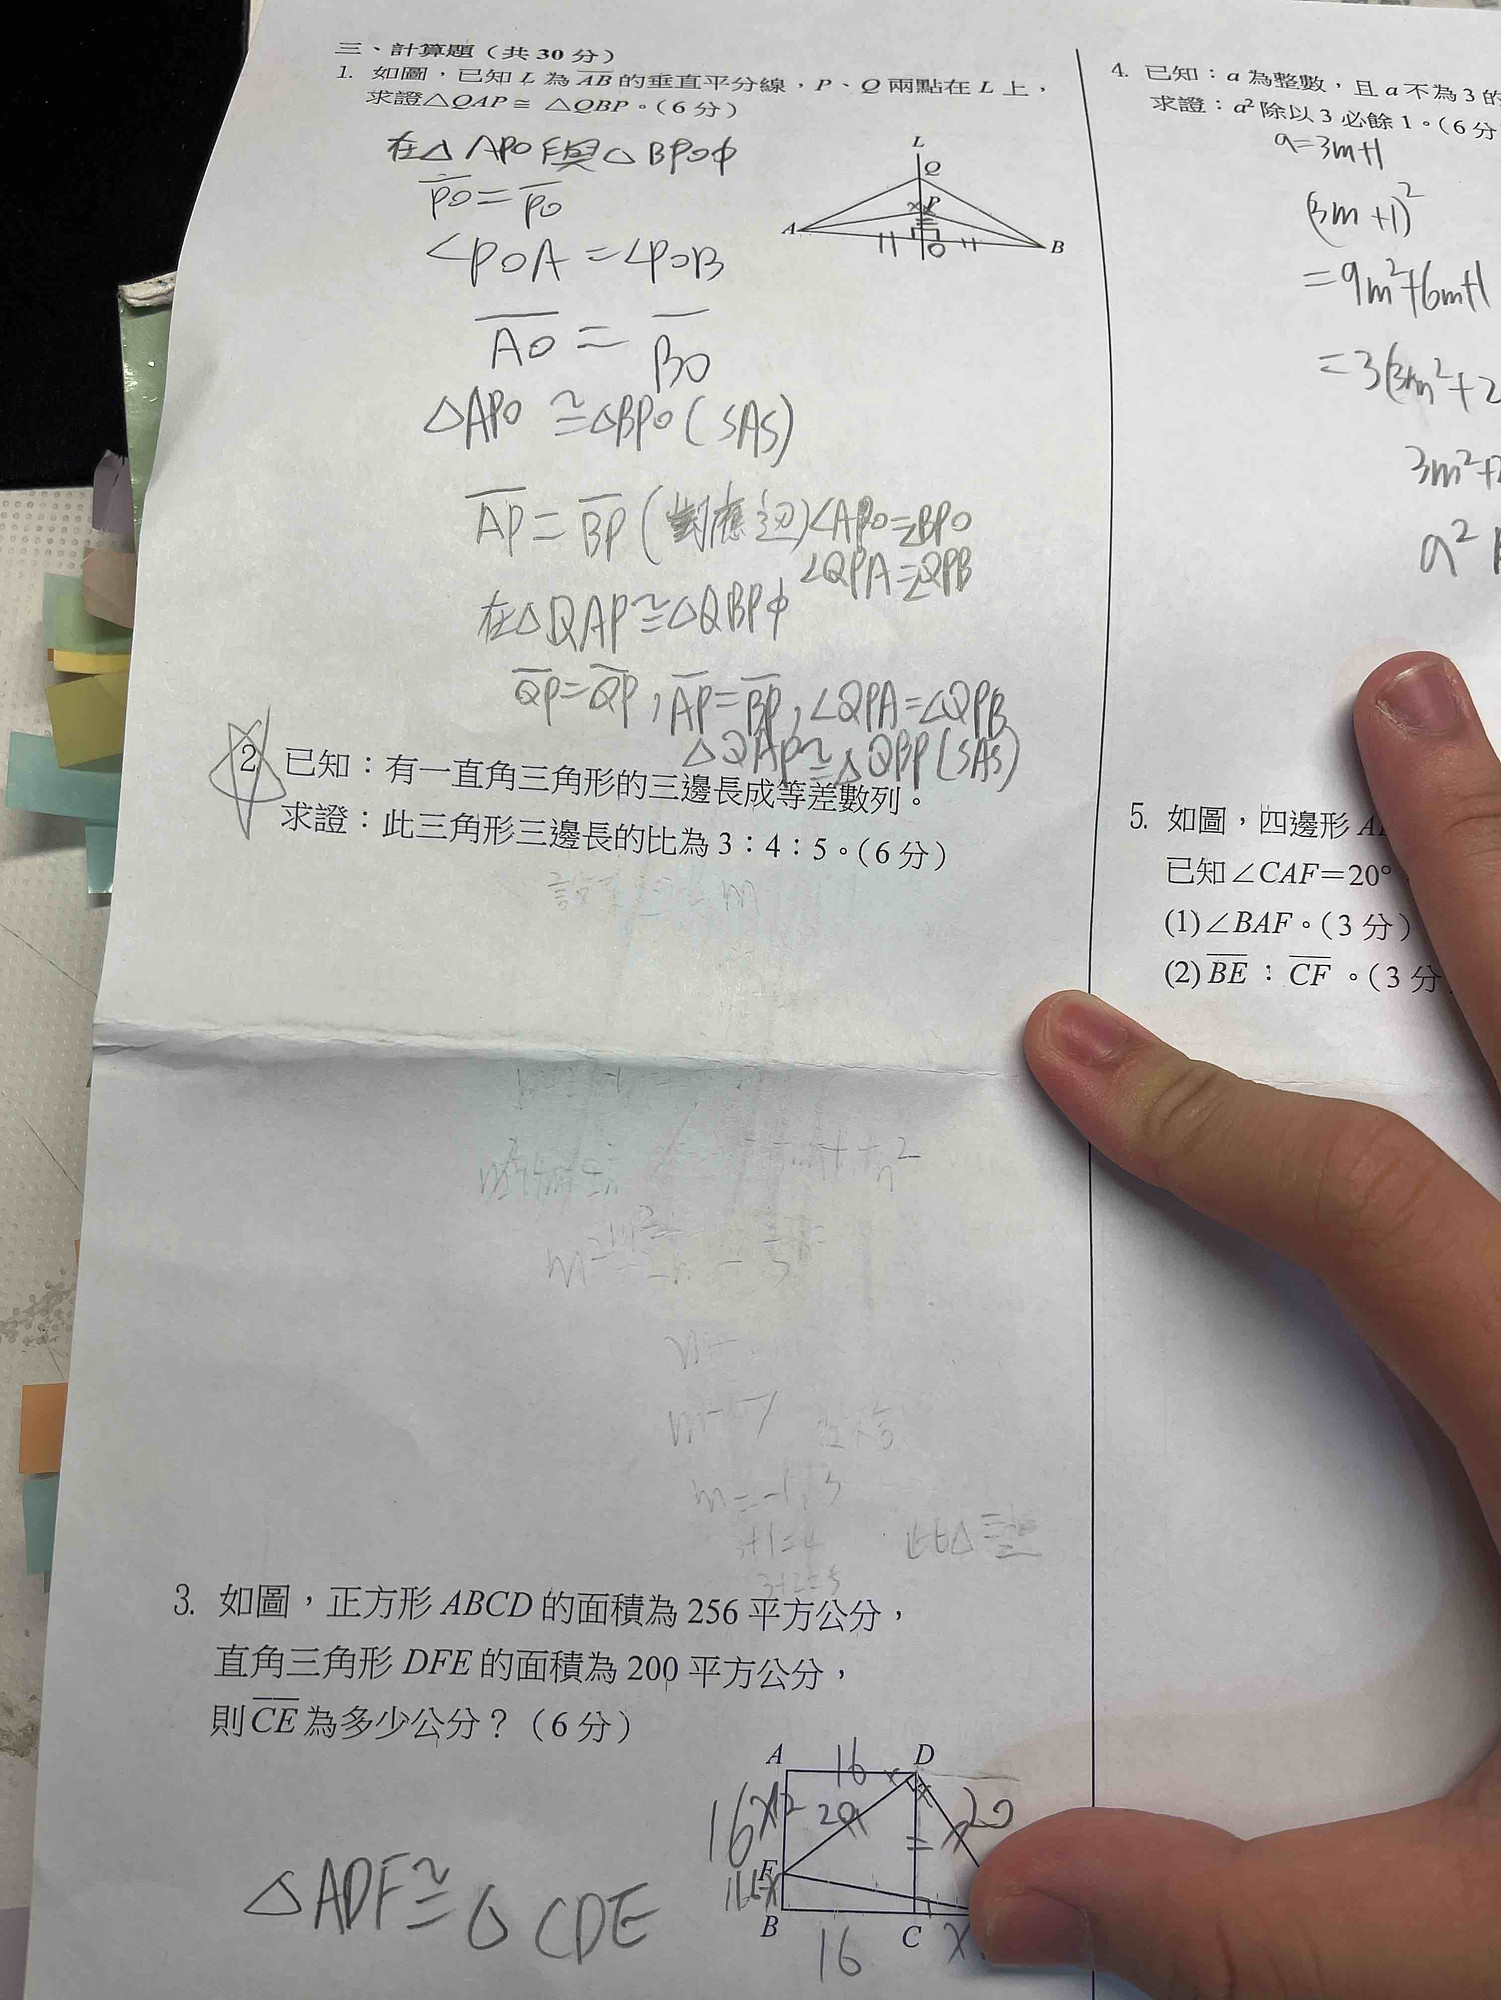 三、計算題（共 30 分）
1. 如圖，已知 L 為 AB 的垂直平分線，P、Q 兩點在 L 上，
求證△QAP ≅ △QBP。（6 分）
在△APO與△BPO中
PO=PO
∠POA=∠POB
AO=BO
△APO≅△BPO(SAS)
AP=BP(對應边)∠APO=∠BPO
∠QPA=∠QPB
在△QAP≅△QBP中
QP=QP,AP=BP,∠QPA=∠QPB
△QAP≅△QBP(SAS)
L
Q
P
A
O
B
2 已知：有一直角三角形的三邊長成等差數列。
求證：此三角形三邊長的比為 3：4：5。（6 分）
m=-1,3
3+1=4
3. 如圖，正方形 ABCD 的面積為 256 平方公分，
直角三角形 DFE 的面積為 200 平方公分，
則 CE 為多少公分？（6 分）
△ADF≅△CDE
A 16 D
16 x 12 20 x x 20
F
16-x
B C x
16
4. 已知：a 為整數，且 a 不為 3 的
求證：a² 除以 3 必餘 1。（6 分
a=3m+1
(3m+1)²
=9m²+6m+1
=3(3m²+2
3m²+2
a²
5. 如圖，四邊形
已知∠CAF＝20°
(1)∠BAF。（3 分）
(2) BE：CF。（3 分